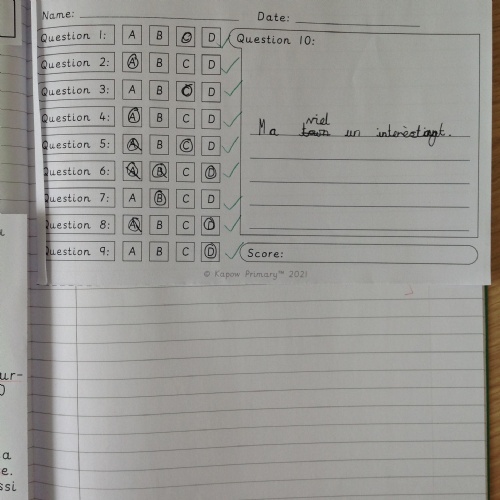 Name:
Date:
Question 1: A B C D
Question 2: A B C D
Question 3: A B C D
Question 4: A B C D
Question 5: A B C D
Question 6: A B C D
Question 7: A B C D
Question 8: A B C D
Question 9: A B C D
Question 10:
viel
Ma town un
Score:
© Kapow Primary™ 2021
ur-
a
e.
ssi